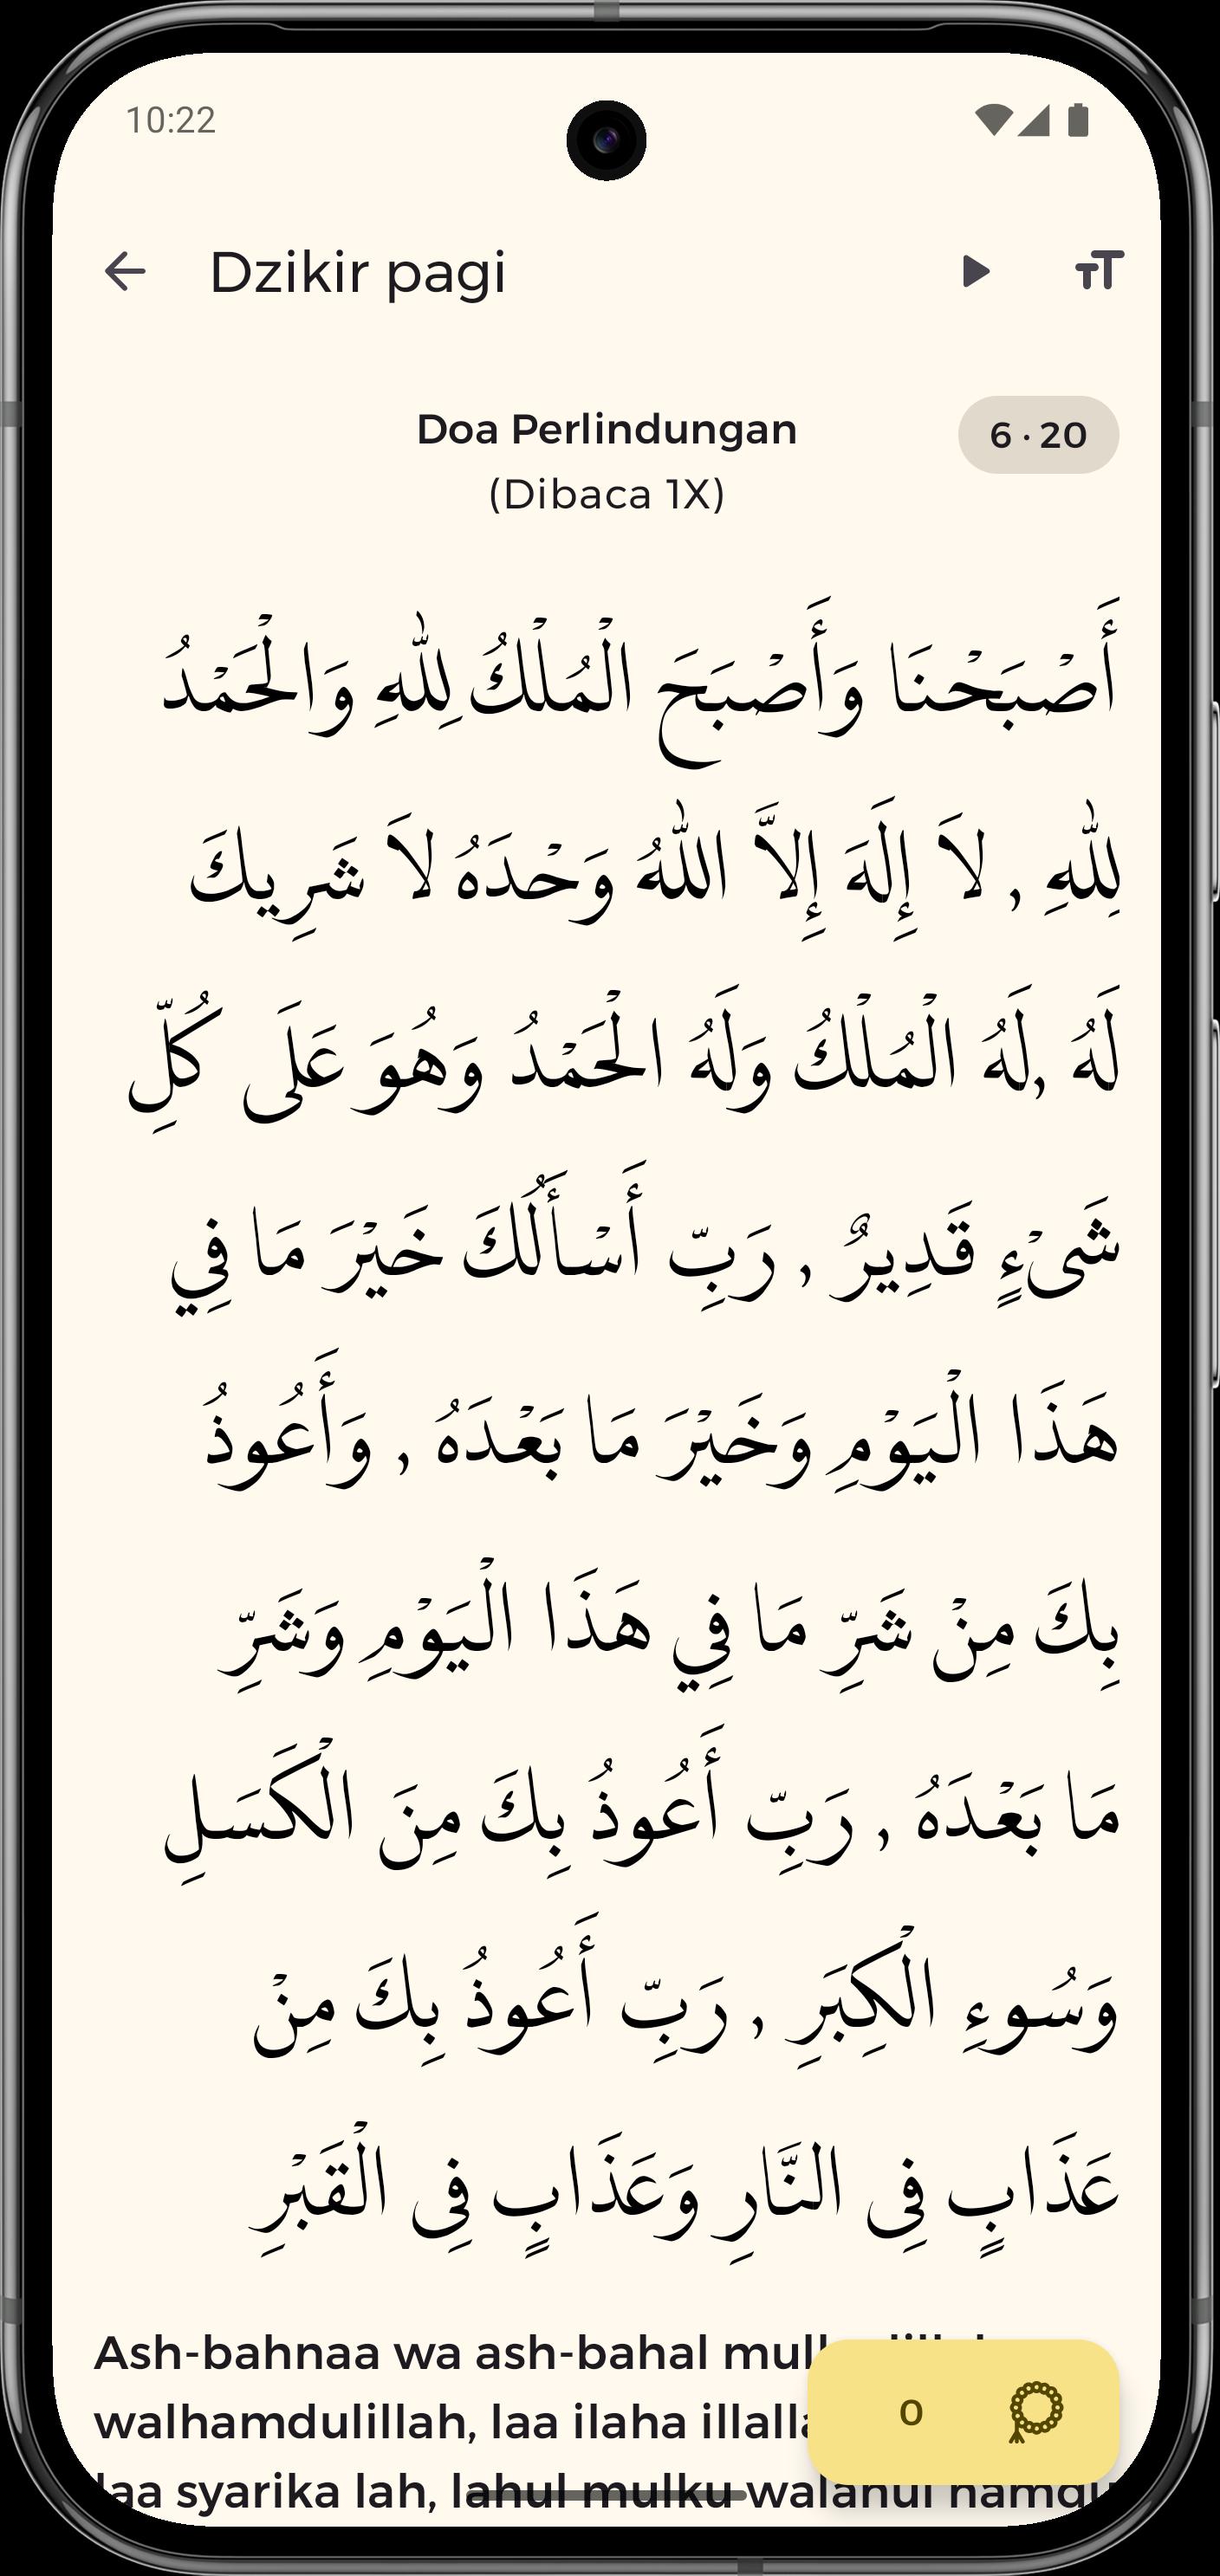 10:22
Dzikir pagi
Doa Perlindungan
6 · 20
(Dibaca 1X)
أَصْبَحْنَا وَأَصْبَحَ الْمُلْكُ لِلّٰهِ وَالْحَمْدُ
لِلّٰهِ , لاَ إِلَهَ إِلاَّ اللّٰهُ وَحْدَهُ لاَ شَرِيكَ
لَهُ ,لَهُ الْمُلْكُ وَلَهُ الْحَمْدُ وَهُوَ عَلَى كُلِّ
شَىْءٍ قَدِيرٌ , رَبِّ أَسْأَلُكَ خَيْرَ مَا فِي
هَذَا الْيَوْمِ وَخَيْرَ مَا بَعْدَهُ , وَأَعُوذُ
بِكَ مِنْ شَرِّ مَا فِي هَذَا الْيَوْمِ وَشَرِّ
مَا بَعْدَهُ , رَبِّ أَعُوذُ بِكَ مِنَ الْكَسَلِ
وَسُوءِ الْكِبَرِ , رَبِّ أَعُوذُ بِكَ مِنْ
عَذَابٍ فِى النَّارِ وَعَذَابٍ فِى الْقَبْرِ
Ash-bahnaa wa ash-bahal
walhamdulillah, laa ilaha
laa syarika lah, lahul mulku walahul hamdu
0